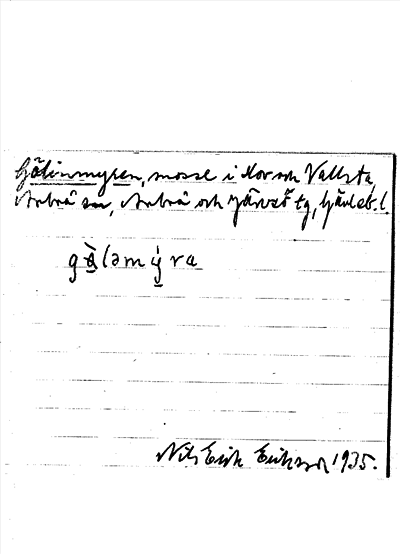 Gölinmyren, mosse i Kor och Vallsta,
Arbrå sn, Arbrå och Järvsö tg, Gävleb. l.
gö̀ləmýra
Nils Erik Eriksson 1935.